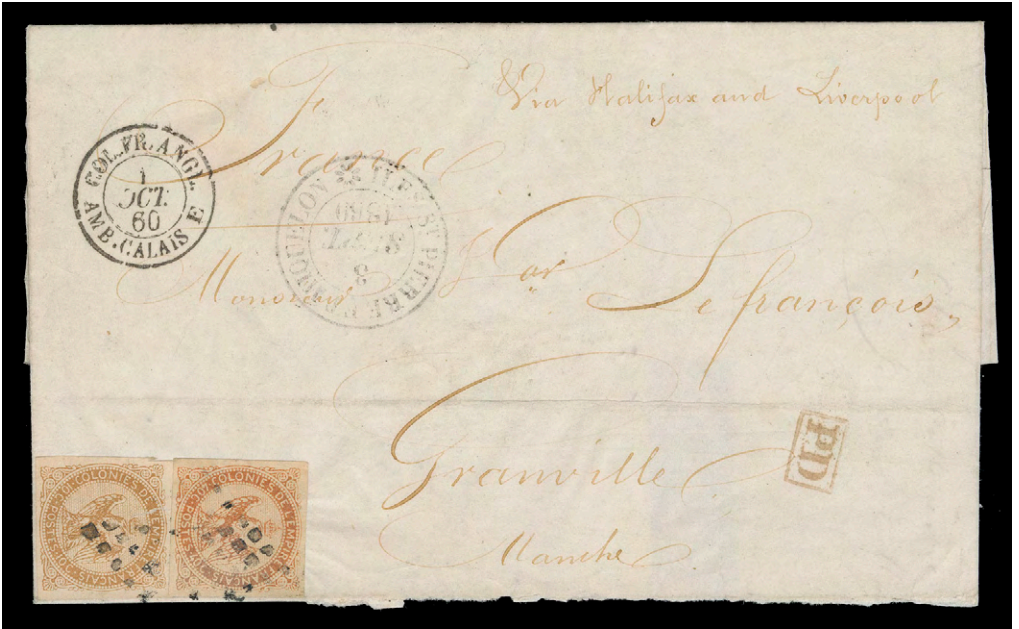 Via Halifax and Liverpool
France
COL. FR. ANGL.
1
OCT.
60
AMB. CALAIS E
ILES ST PIERRE
MIQUELON
8
SEPT.
1860
Monsieur
Lefrançois,
Granville
P.D
Manche
COLONIES DE L'EMPIRE FRANÇAIS POSTES
COLONIES DE L'EMPIRE FRANÇAIS POSTES